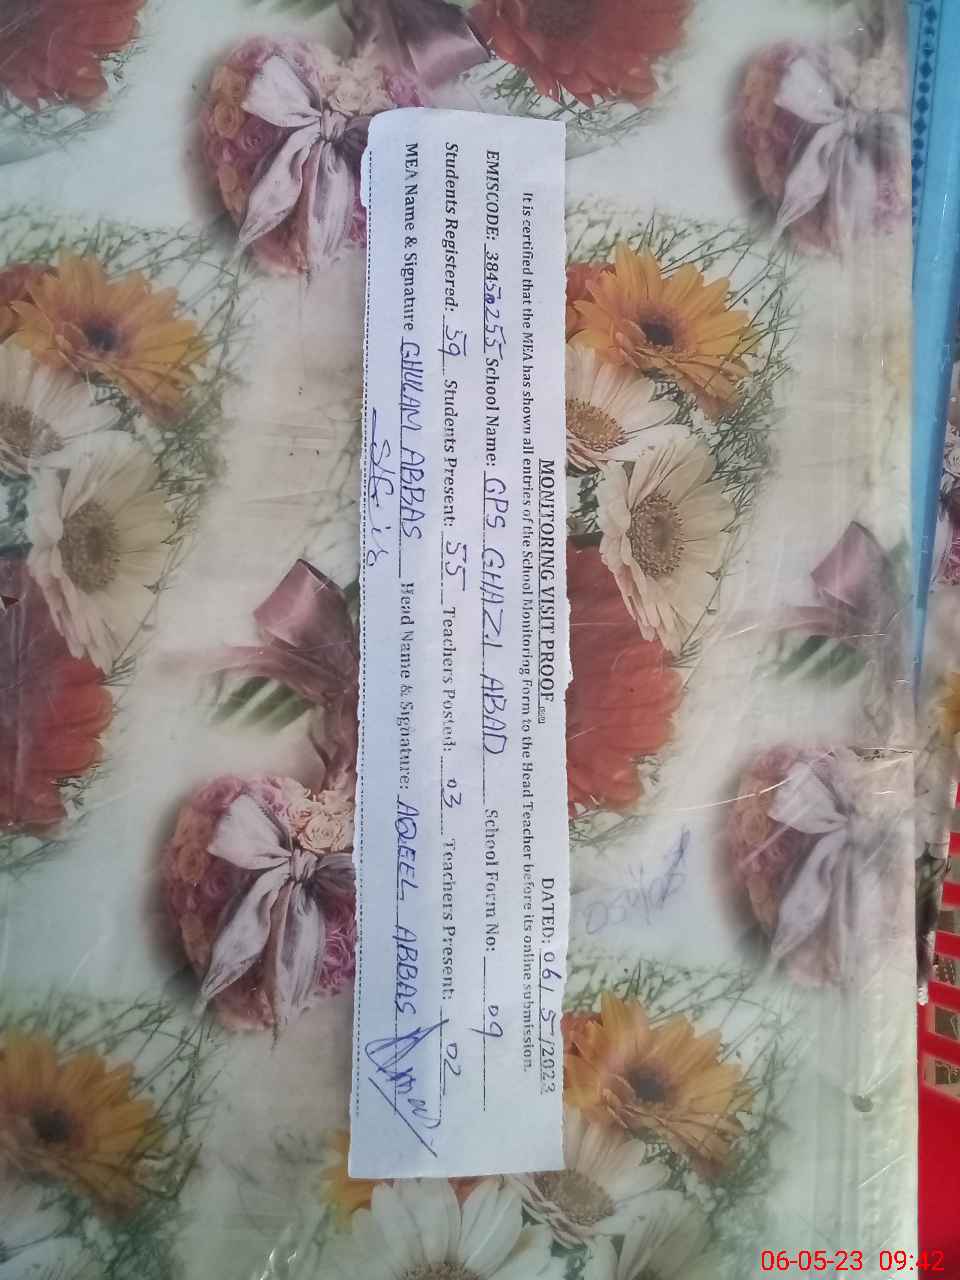 MONITORING VISIT PROOF
DATED: 06/5/2023
It is certified that the MEA has shown all entries of the School Monitoring Form to the Head Teacher before its online submission.
EMISCODE: 38450255 School Name: GPS GHAZI ABAD School Form No: 09
Students Registered: 59 Students Present: 55 Teachers Posted: 03 Teachers Present: 02
MEA Name & Signature GHULAM ABBAS Head Name & Signature: AQEEL ABBAS
06-05-23 09:42